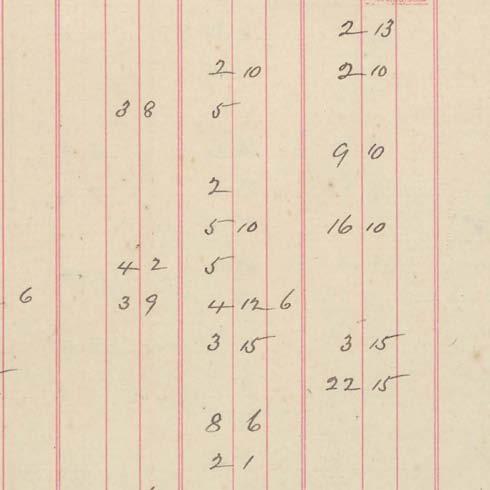 2 13
2 10 2 10
3 8 5
9 10
2
5 10 16 10
4 2 5
6 3 9 4 12 6
3 15 3 15
22 15
8 6
2 1